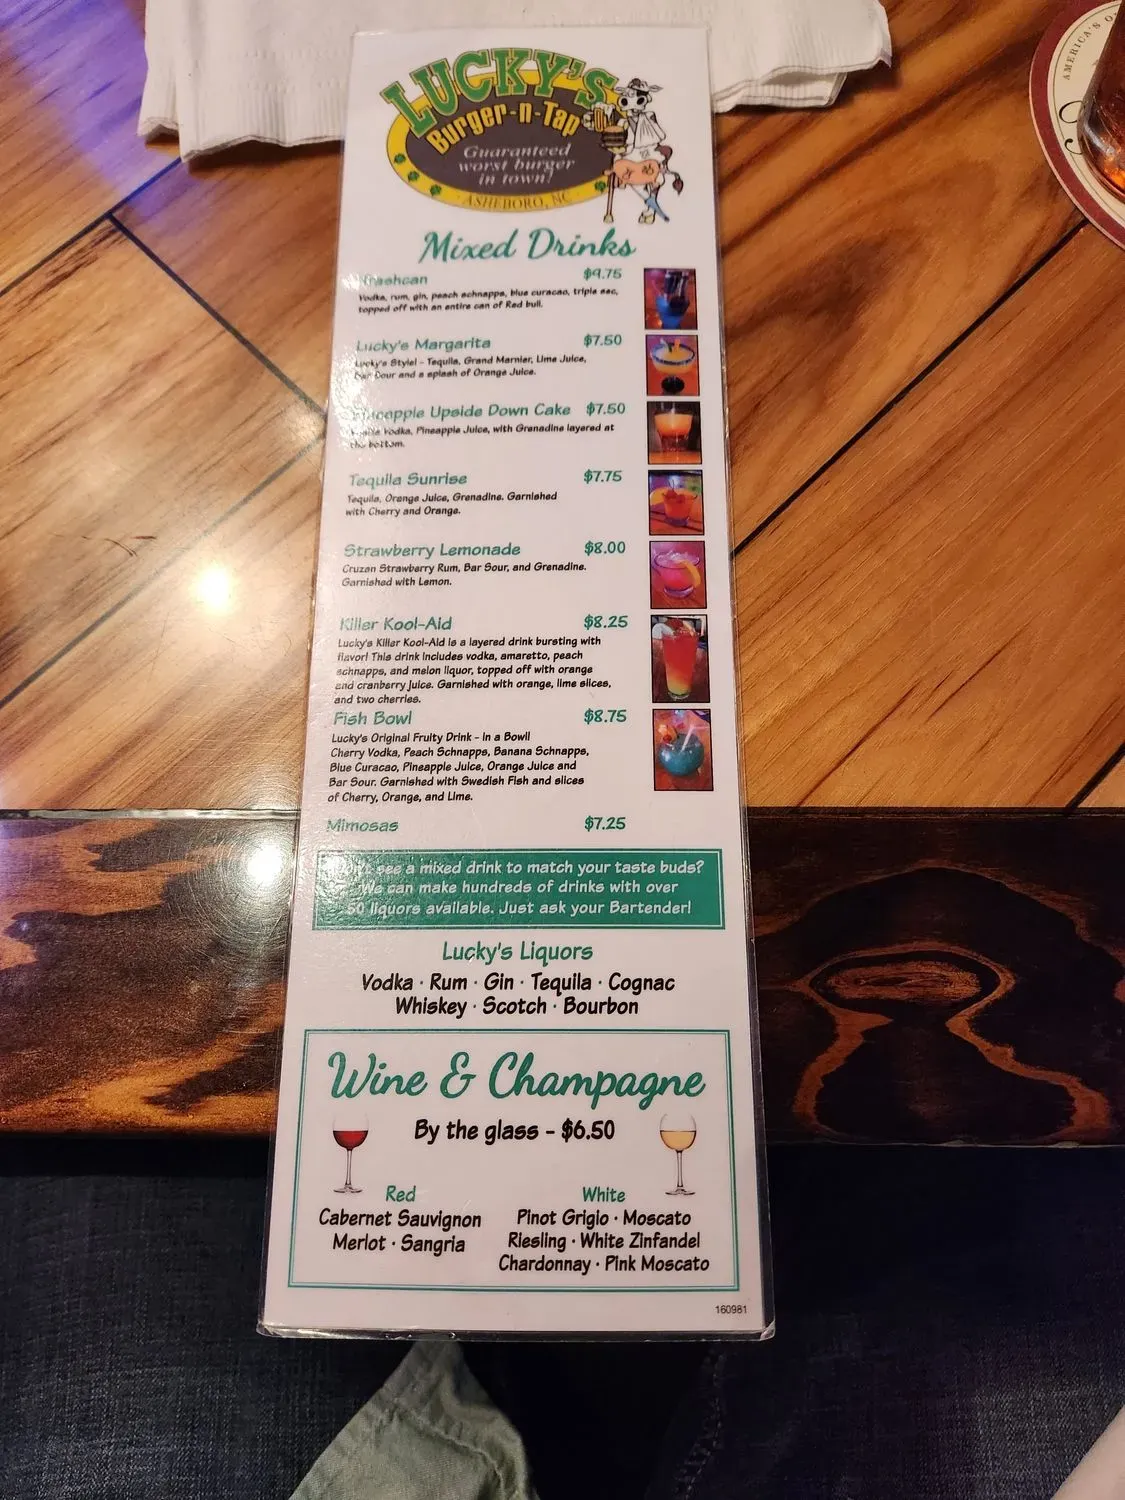 LUCKY'S
Burger-n-Tap
Guaranteed
worst burger
in town!
ASHEBORO, NC
AMERICA'S
Mixed Drinks
Trashcan $9.75
Vodka, rum, gin, peach schnapps, blue curacao, triple sec,
topped off with an entire can of Red bull.
Lucky's Margarita $7.50
Lucky's Style! - Tequila, Grand Marnier, Lime Juice,
Bar Sour and a splash of Orange Juice.
Pineapple Upside Down Cake $7.50
Vodka, Pineapple Juice, with Grenadine layered at
the bottom.
Tequila Sunrise $7.75
Tequila, Orange Juice, Grenadine. Garnished
with Cherry and Orange.
Strawberry Lemonade $8.00
Cruzan Strawberry Rum, Bar Sour, and Grenadine.
Garnished with Lemon.
Killer Kool-Aid $8.25
Lucky's Killer Kool-Aid is a layered drink bursting with
flavor! This drink includes vodka, amaretto, peach
schnapps, and melon liquor, topped off with orange
and cranberry juice. Garnished with orange, lime slices,
and two cherries.
Fish Bowl $8.75
Lucky's Original Fruity Drink - in a Bowl!
Cherry Vodka, Peach Schnapps, Banana Schnapps,
Blue Curacao, Pineapple Juice, Orange Juice and
Bar Sour. Garnished with Swedish Fish and slices
of Cherry, Orange, and Lime.
Mimosas $7.25
Don't see a mixed drink to match your taste buds?
We can make hundreds of drinks with over
50 liquors available. Just ask your Bartender!
Lucky's Liquors
Vodka · Rum · Gin · Tequila · Cognac
Whiskey · Scotch · Bourbon
Wine & Champagne
By the glass - $6.50
Red White
Cabernet Sauvignon Pinot Grigio · Moscato
Merlot · Sangria Riesling · White Zinfandel
Chardonnay · Pink Moscato
160981